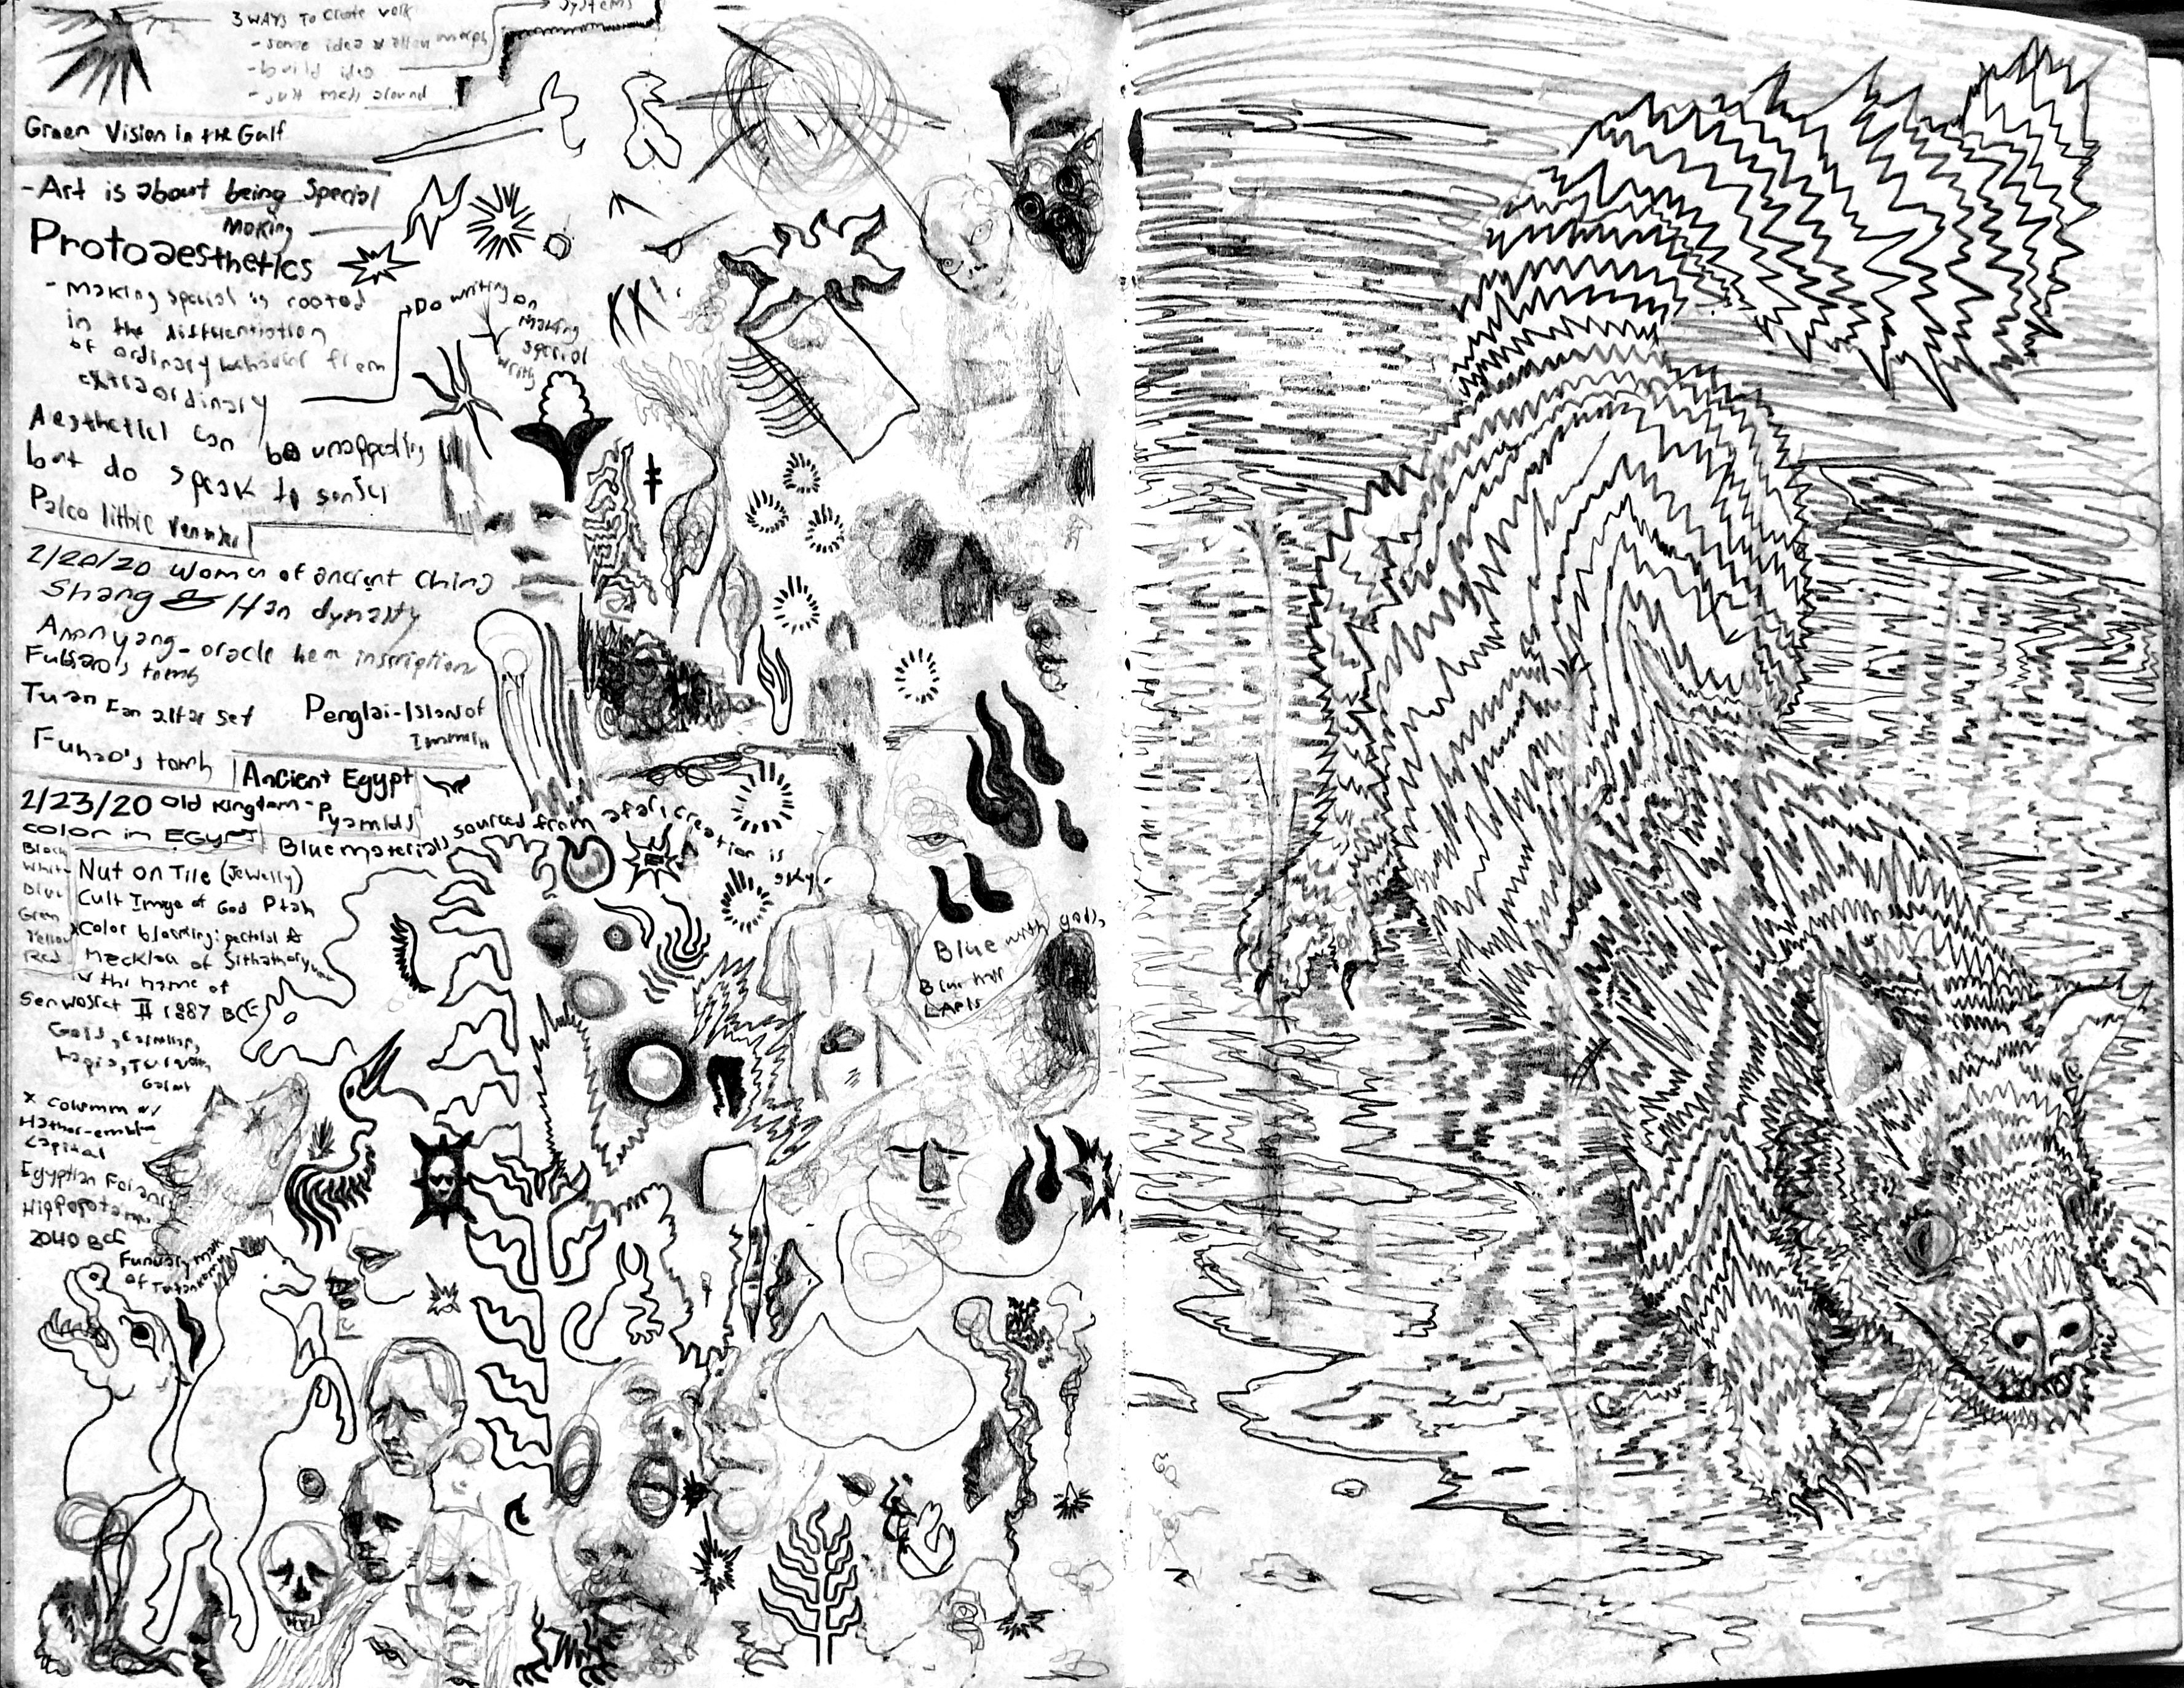 3 WAYS TO Create work
systems
- some idea & allow morph
- build idea
- Just mess around
Green Vision in the Gulf
- Art is about being Special
Making
Protoaesthetics
- Making special is rooted
in the differentiation
of ordinary behavior from
extraordinary
Do writing on
making
special
Aesthetics can be
but do speak to senses
Paleo lithic
2/20/20 Women of ancient China
Shang & Han dynasty
oracle inscription
tomb
altar set
Penglai-Island of
Fuhao's tomb
Ancient Egypt
2/23/20 Old Kingdom - Pyramids
Color in EGYPT
Blue materials sourced from afar: creation is
sky
Black
White
Blue
Green
Yellow
Red
Nut on Tile (Jewelry)
Cult Image of God Ptah
Color blocking: pectoral &
of
in the name of
Senwosret II 1887 BCE
Gold,
Blue with gods
Blue hair
LAPIS
x column w/
Hathor-emblem
capital
Egyptian
Hippopotamus
2040 BCE
Funerary mask
of